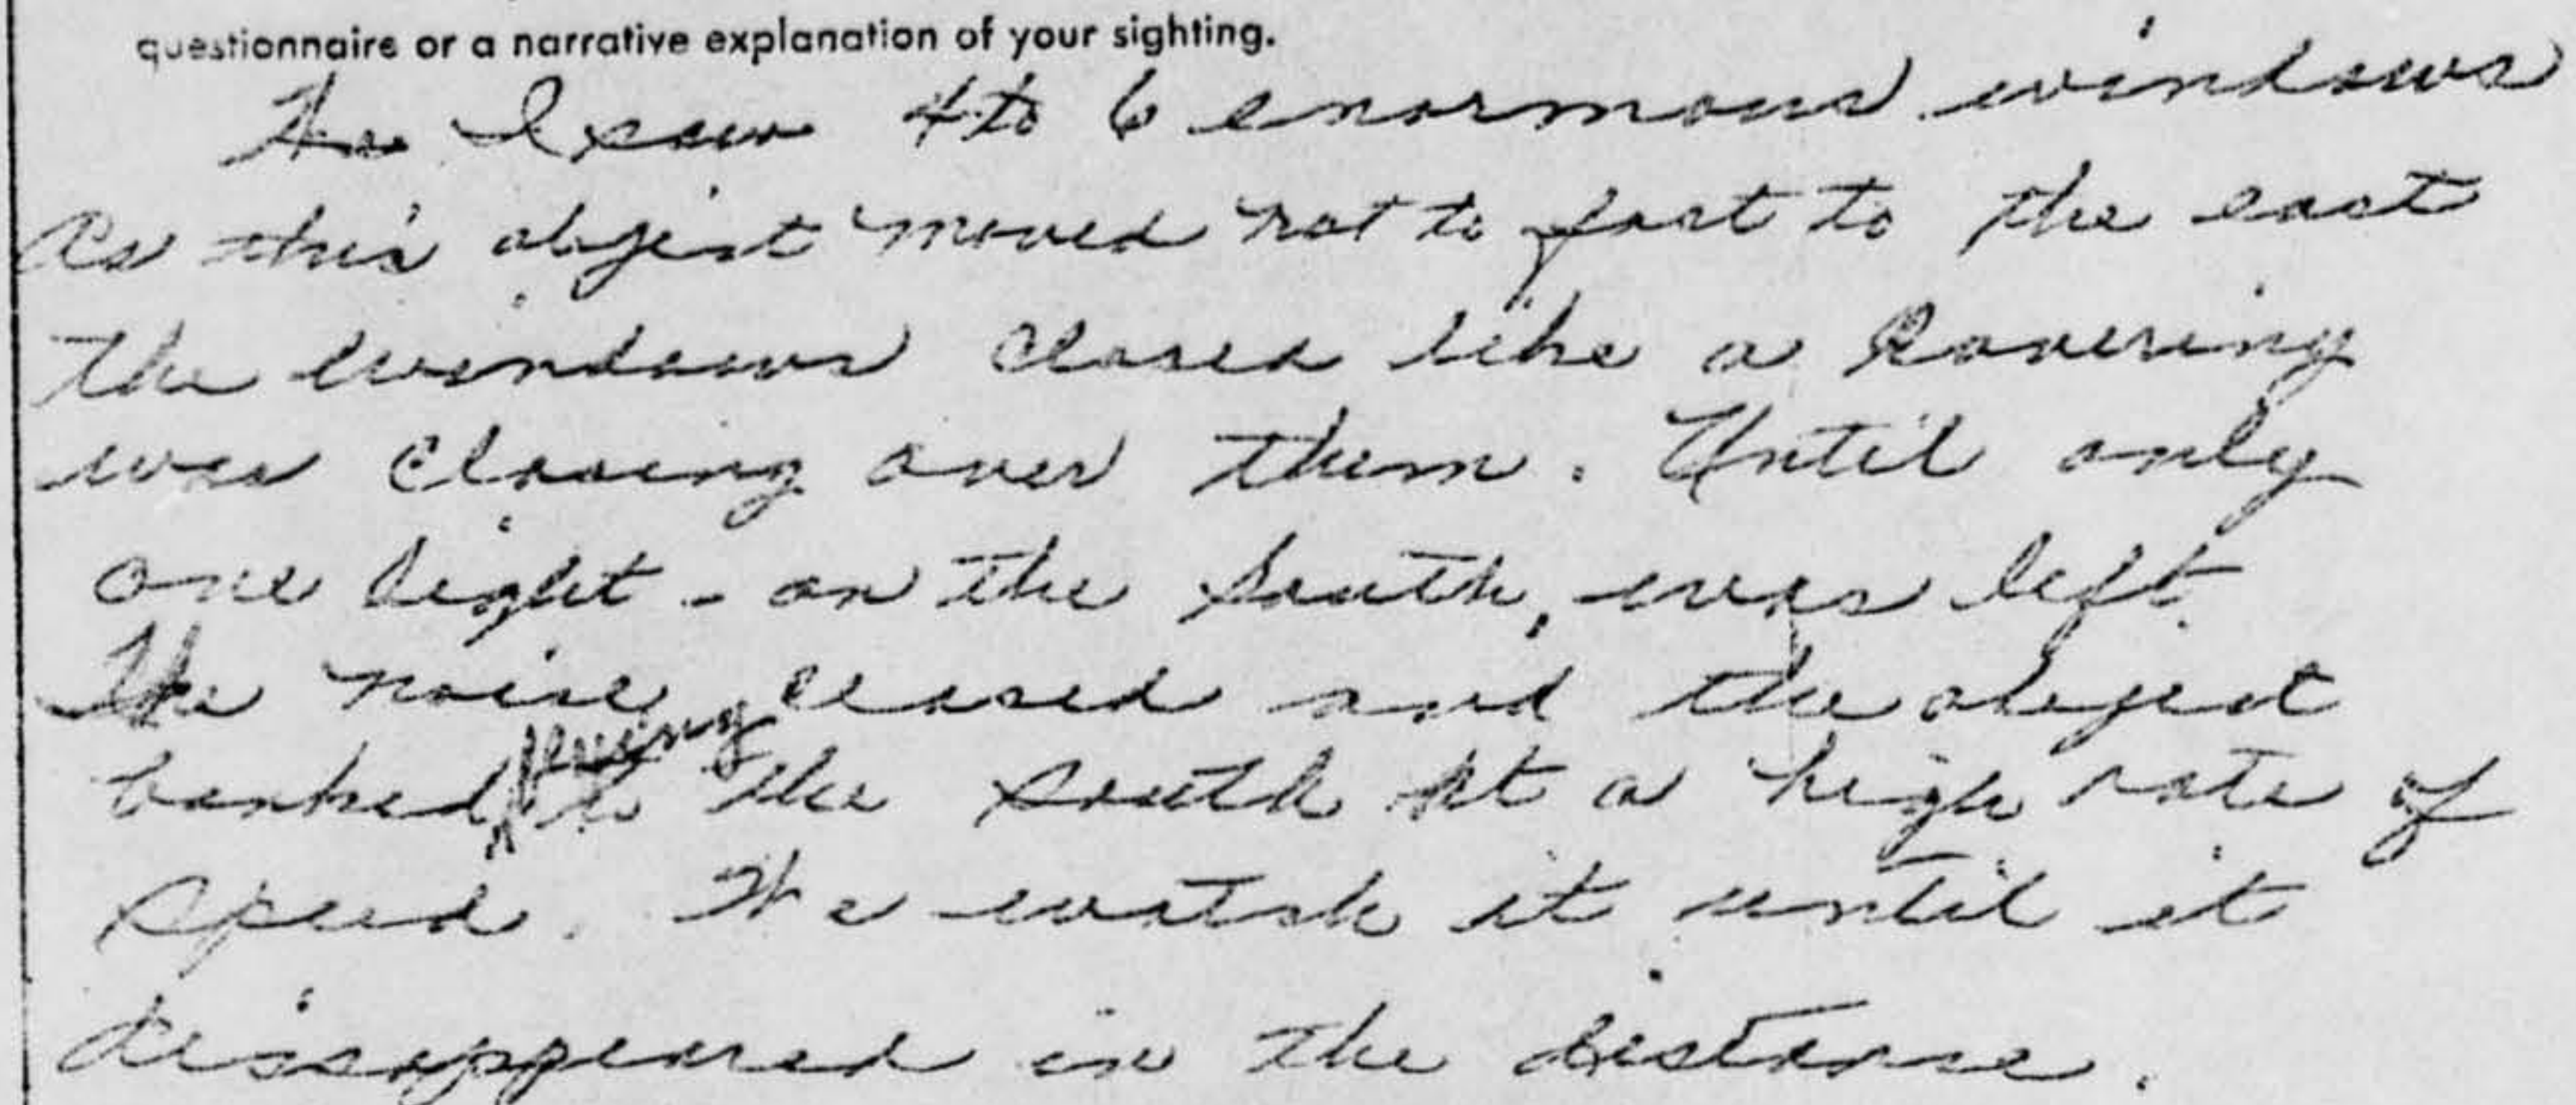 questionnaire or a narrative explanation of your sighting.
I saw 4 to 6 enormous windows
As this object moved not to fast to the east
the windows closed like a covering
was closing over them. Until only
one light - on the south, was left.
The noise ceased and the object
going
banked to the south at a high rate of
speed. We watch it until it
disappeared in the distance.